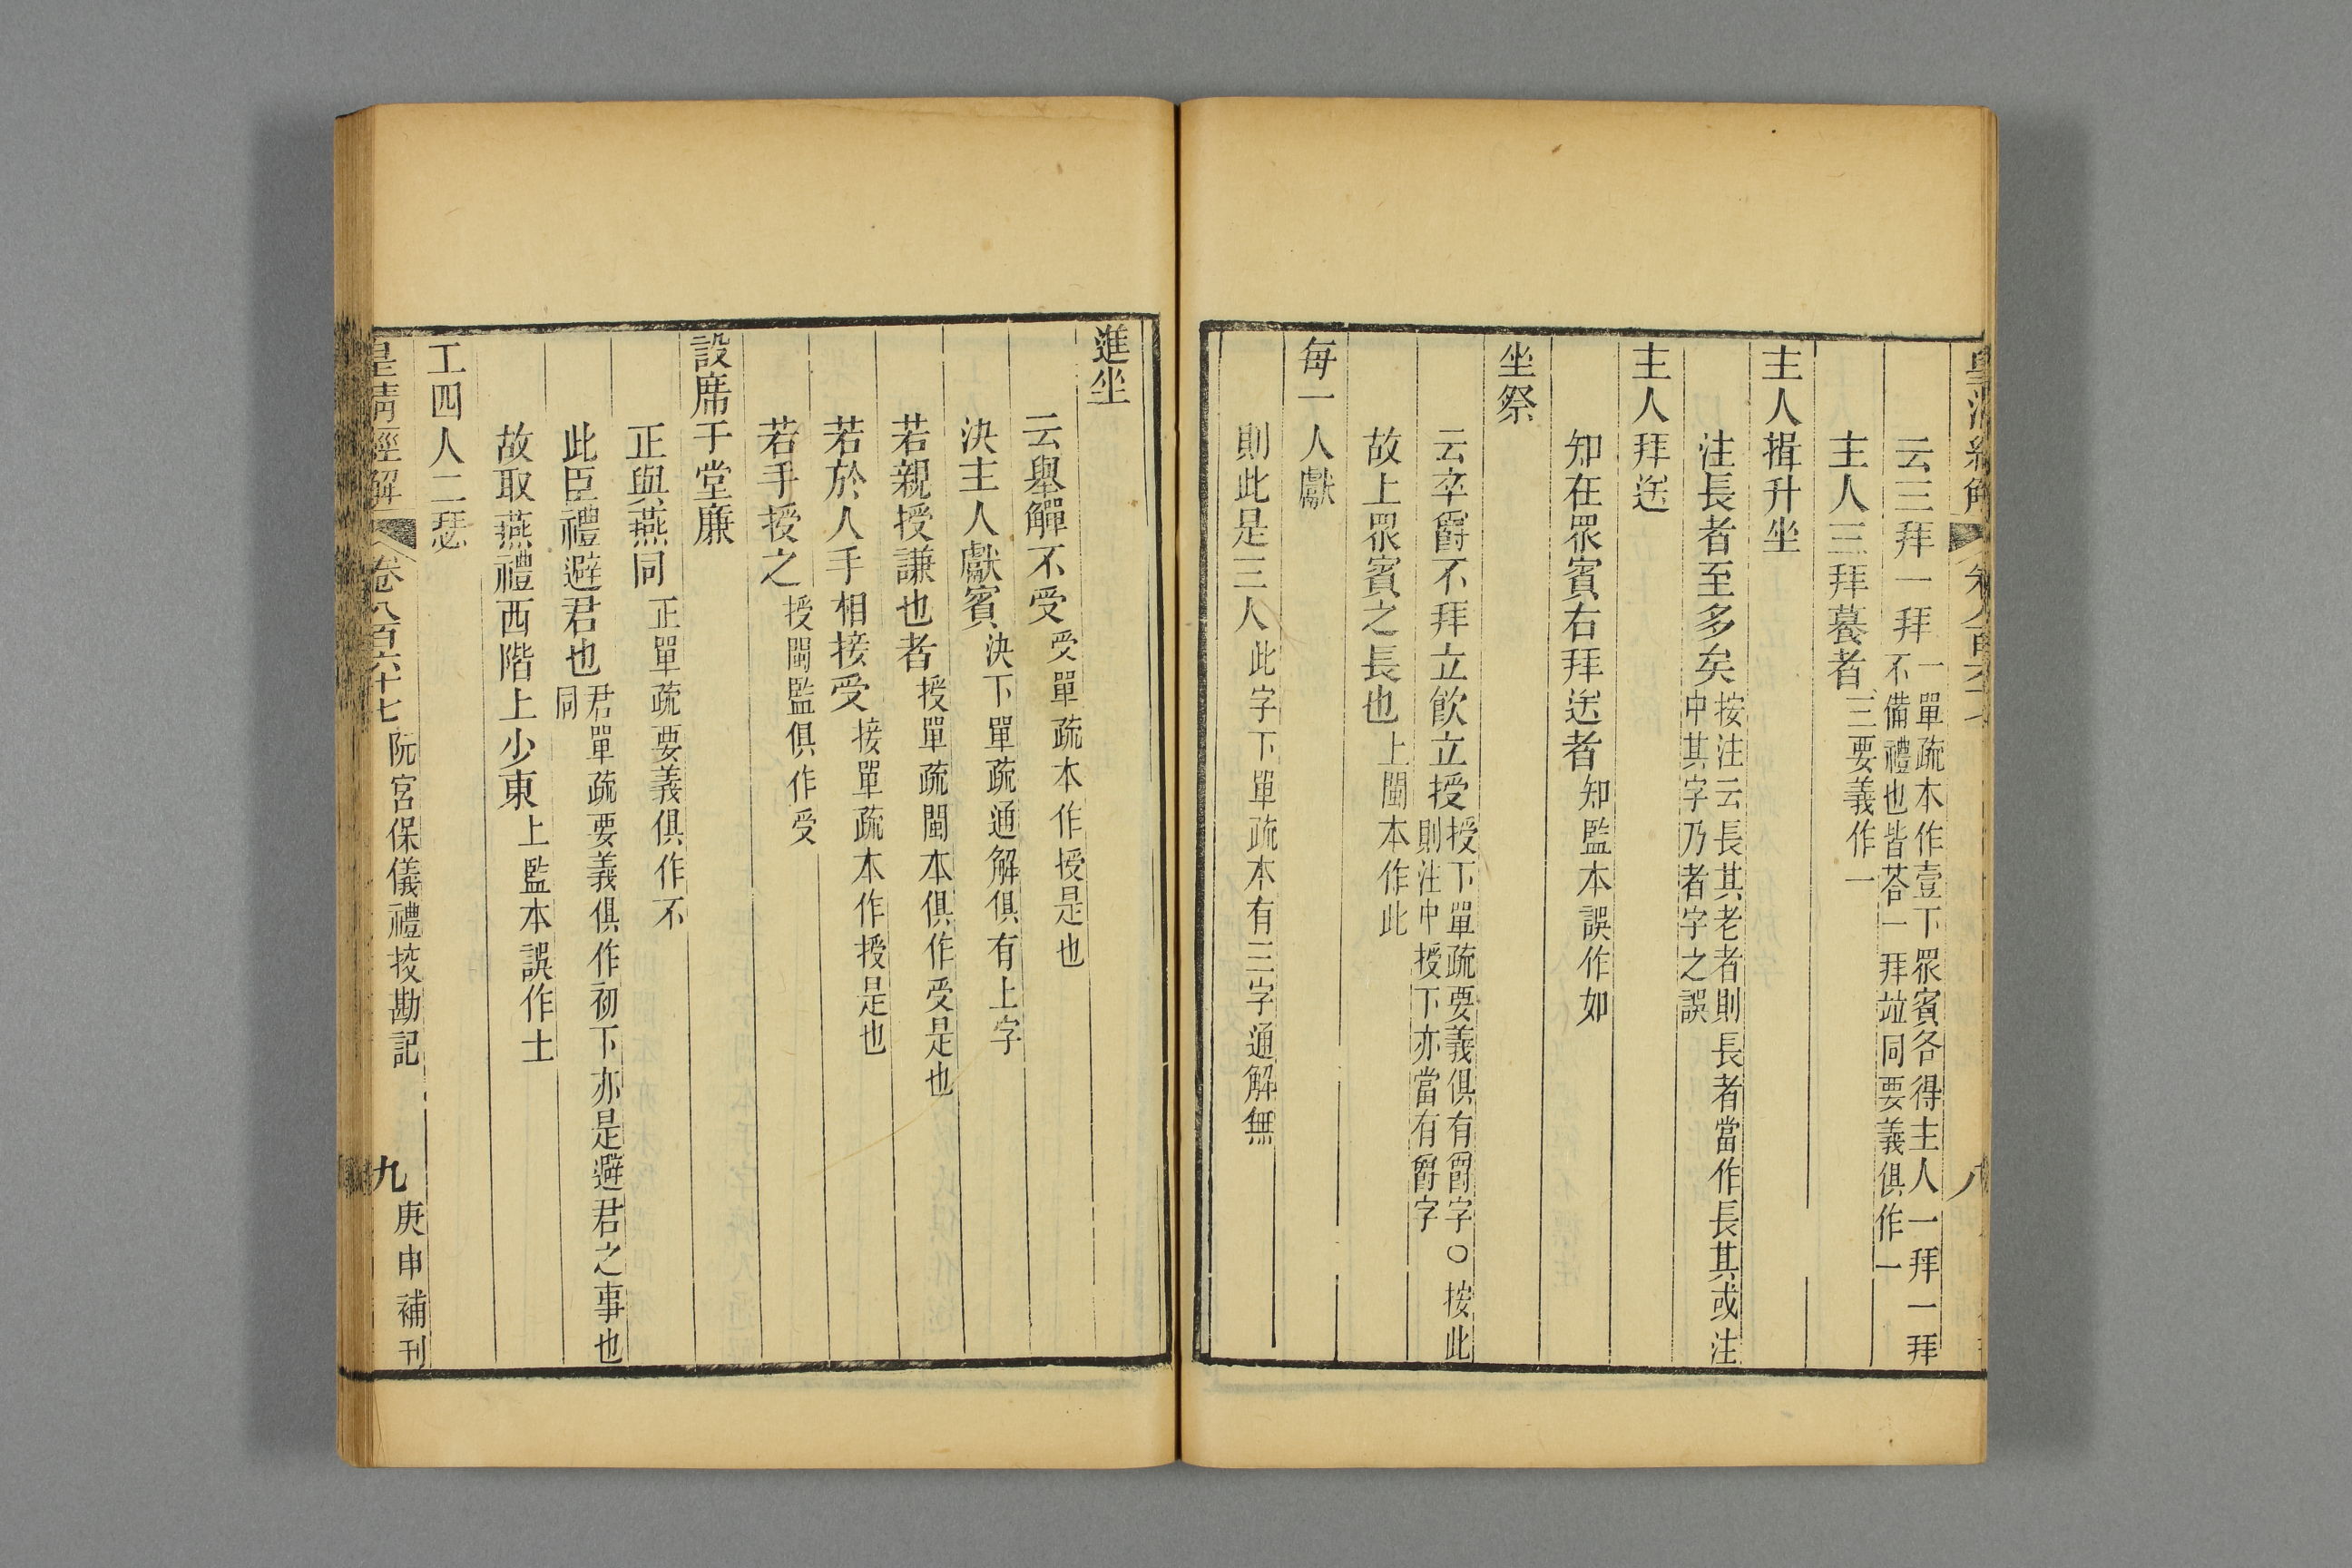 云三拜一拜一單疏本作壹下眾賓各得主人一拜一拜
不備禮也皆荅一拜竝同要義俱作一
主人三拜養者三要義作一
主人揖升坐
注長者至多矣按注云長其老者則長者當作長其或注
中其字乃者字之誤
主人拜送
知在眾賓右拜送者知監本誤作如
坐祭
云卒爵不拜立飮立授授下單疏要義俱有爵字○按此
則注中授下亦當有爵字
故上眾賓之長也上閩本作此
每一人獻
則此是三人此字下單疏本有三字通解無
進坐
云舉觶不受受單疏本作授是也
決主人獻賓決下單疏通解俱有上字
若親授謙也者授單疏閩本俱作受是也
若於人手相接受接單疏本作授是也
若手授之授閩監俱作受
設席于堂廉
正與燕同正單疏要義俱作不
此臣禮避君也君單疏要義俱作初下亦是避君之事也
同
故取燕禮西階上少東上監本誤作士
工四人二瑟
皇淸經解 卷八百六十七 阮宮保儀禮挍勘記 九 庚申補刊